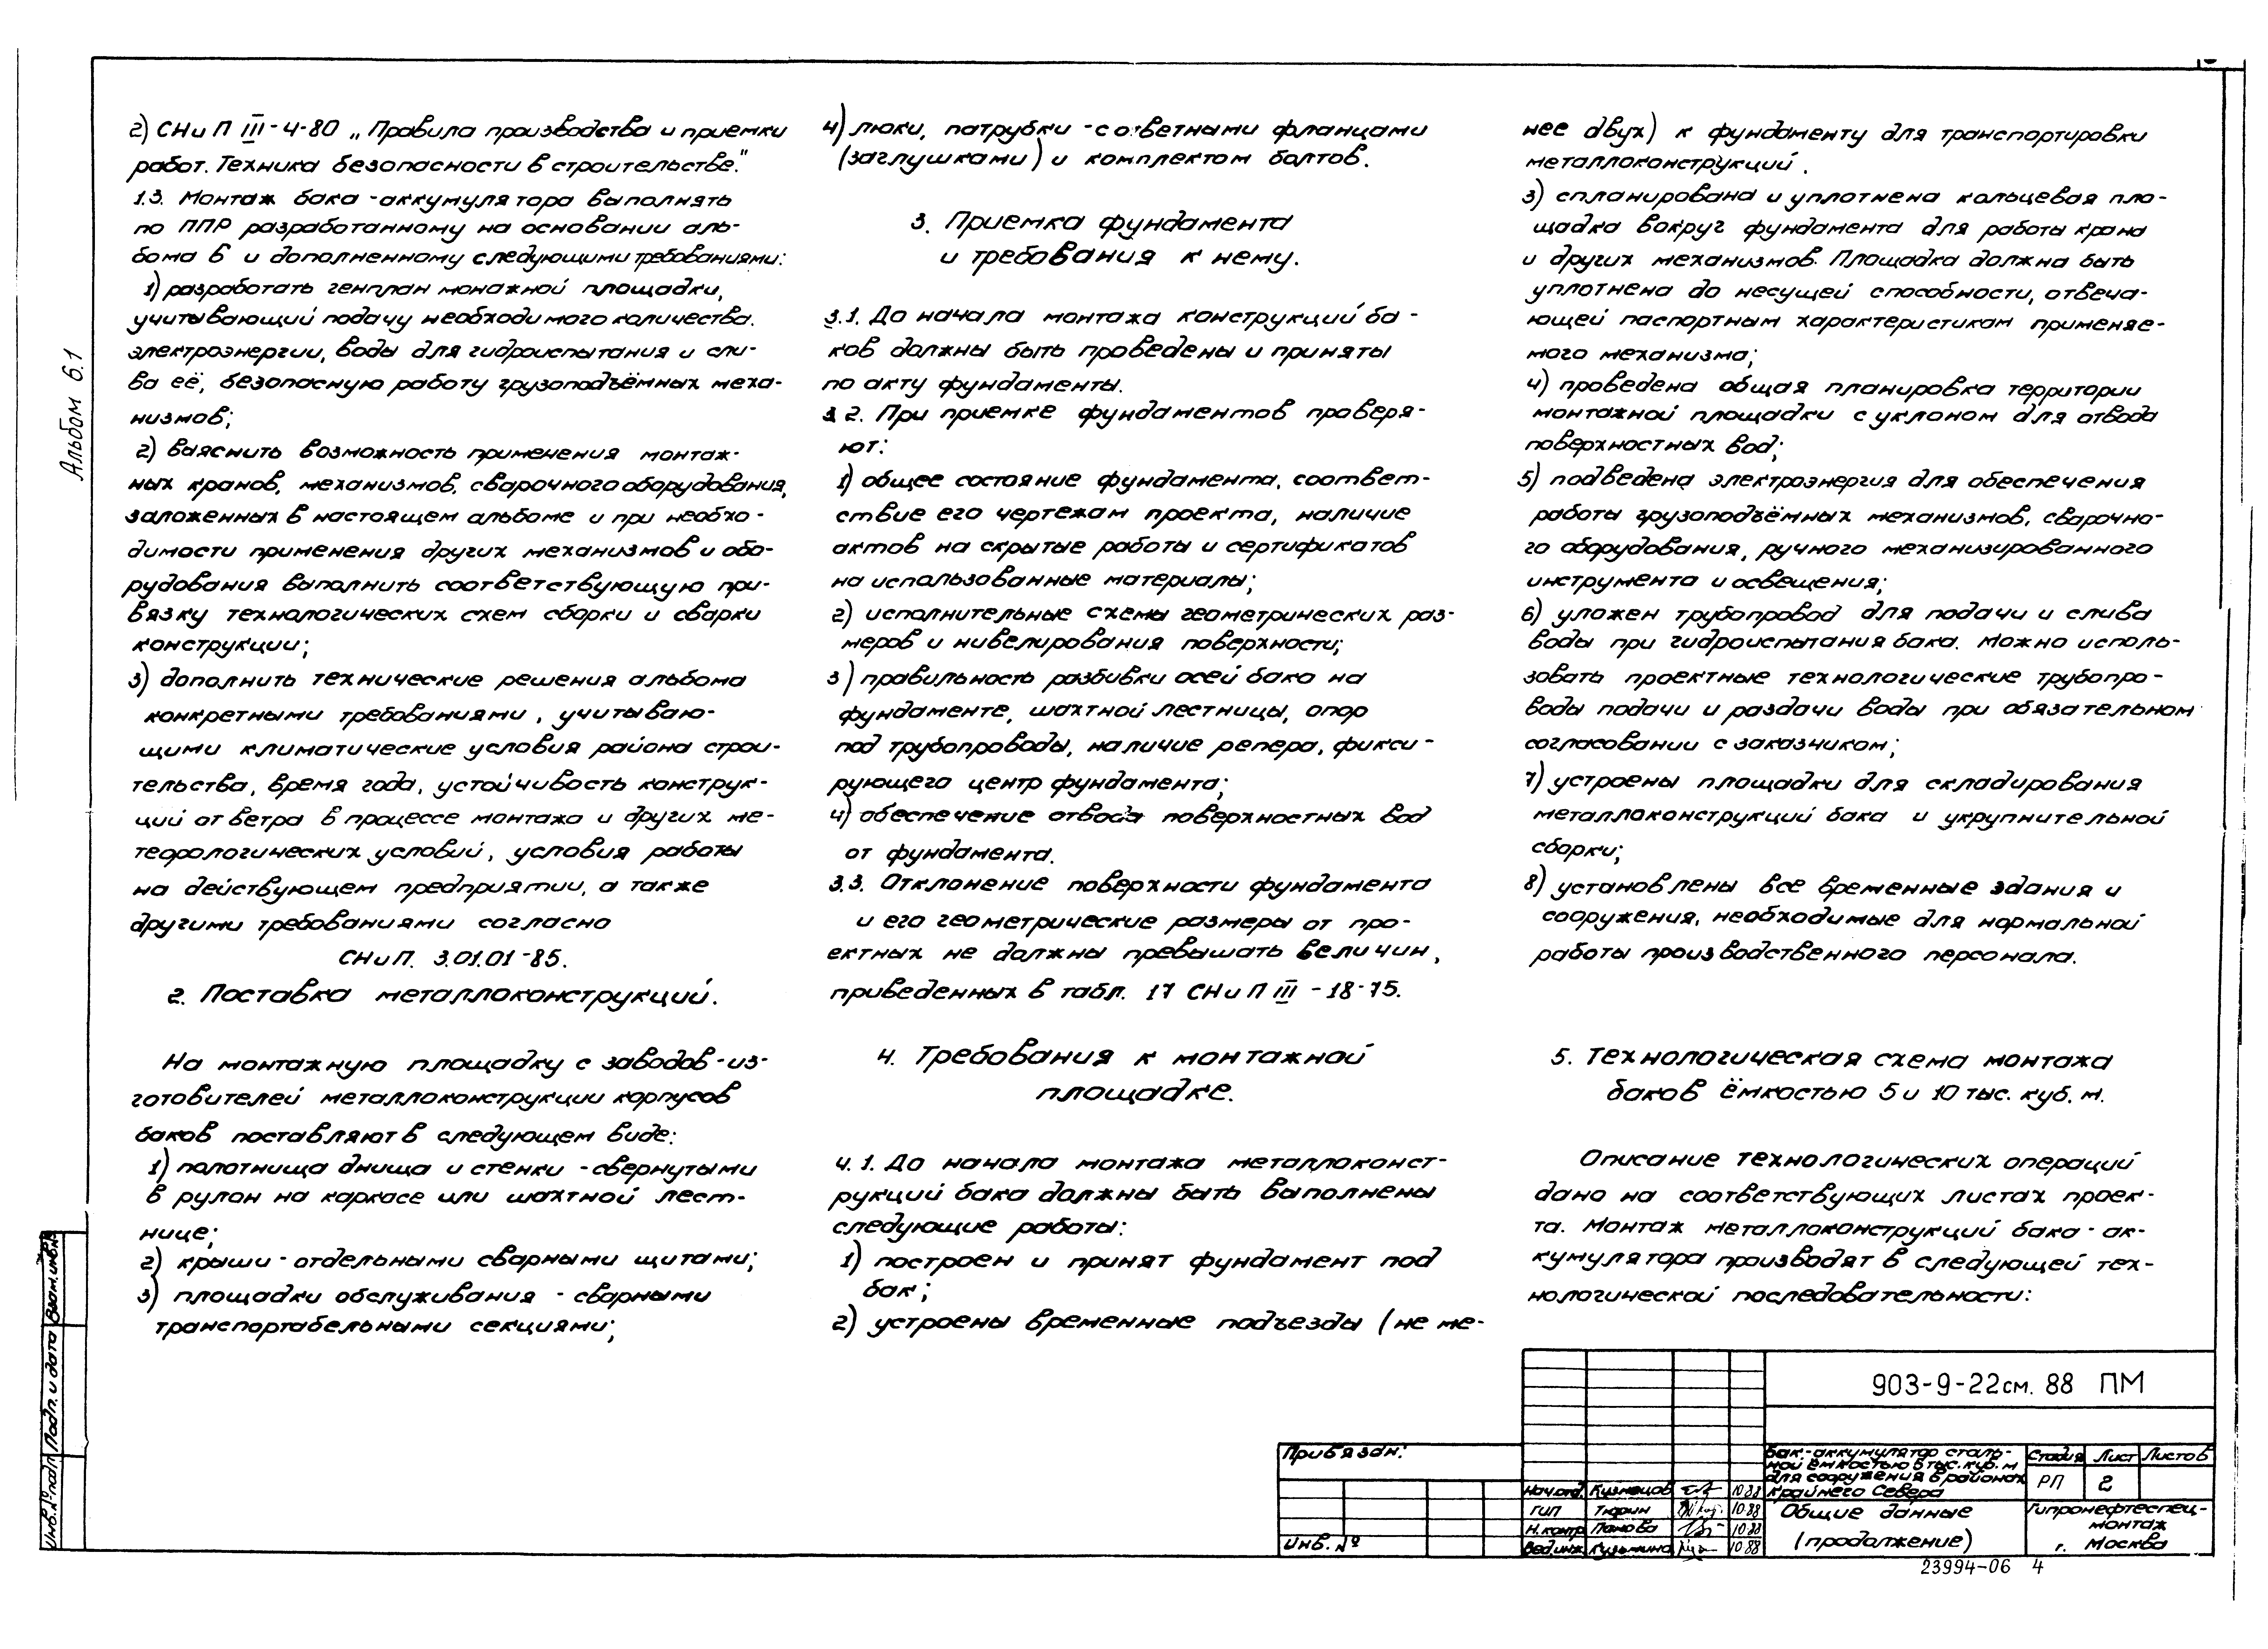 Альбом 6.1
2) СНиП III-4-80 „Правила производства и приемки
работ. Техника безопасности в строительстве."
1.3. Монтаж бака-аккумулятора выполнять
по ППР разработанному на основании аль-
бома 6 и дополненному следующими требованиями:
1) разработать генплан монажной площадки,
учитывающий подачу необходимого количества.
электроэнергии, воды для гидроиспытания и сли-
ва её, безопасную работу грузоподъёмных меха-
низмов;
2) выяснить возможность применения монтаж-
ных кранов, механизмов, сварочного оборудования,
заложенных в настоящем альбоме и при необхо-
димости применения других механизмов и обо-
рудования выполнить соответствующую при-
вязку технологических схем сборки и сварки
конструкции;
3) дополнить технические решения альбома
конкретными требованиями, учитываю-
щими климатические условия района строи-
тельства, время года, устойчивость конструк-
ций от ветра в процессе монтажа и других ме-
теорологических условий, условия работы
на действующем предприятии, а также
другими требованиями согласно
СНиП. 3.01.01-85.
2. Поставка металлоконструкций.
На монтажную площадку с заводов-из-
готовителей металлоконструкции корпусов
баков поставляют в следующем виде:
1) полотнища днища и стенки - свернутыми
в рулон на каркасе или шахтной лест-
нице;
2) крыши - отдельными сварными щитами;
3) площадки обслуживания - сварными
транспортабельными секциями;
4) люки, патрубки - с ответными фланцами
(заглушками) и комплектом болтов.
3. Приемка фундамента
и требования к нему.
3.1. До начала монтажа конструкций ба-
ков должны быть проведены и приняты
по акту фундаменты.
3.2. При приемке фундаментов проверя-
ют:
1) общее состояние фундамента, соответ-
ствие его чертежам проекта, наличие
актов на скрытые работы и сертификатов
на использованные материалы;
2) исполнительные схемы геометрических раз-
меров и нивелирования поверхности;
3) правильность разбивки осей бака на
фундаменте, шахтной лестницы, опор
под трубопроводы, наличие репера, фикси-
рующего центр фундамента;
4) обеспечение отвода поверхностных вод
от фундамента.
3.3. Отклонение поверхности фундамента
и его геометрические размеры от про-
ектных не должны превышать величин,
приведенных в табл. 17 СНиП III - 18-75.
4. Требования к монтажной
площадке.
4.1. До начала монтажа металлоконст-
рукций бака должны быть выполнены
следующие работы:
1) построен и принят фундамент под
бак;
2) устроены временные подъезды (не ме-
нее двух) к фундаменту для транспортировки
металлоконструкций.
3) спланирована и уплотнена кольцевая пло-
щадка вокруг фундамента для работы крана
и других механизмов. Площадка должна быть
уплотнена до несущей способности, отвеча-
ющей паспортным характеристикам применяе-
мого механизма;
4) проведена общая планировка территории
монтажной площадки с уклоном для отвода
поверхностных вод;
5) подведена электроэнергия для обеспечения
работы грузоподъёмных механизмов, сварочно-
го оборудования, ручного механизированного
инструмента и освещения;
6) уложен трубопровод для подачи и слива
воды при гидроиспытания бака. Можно исполь-
зовать проектные технологические трубопро-
воды подачи и раздачи воды при обязательном
согласовании с заказчиком;
7) устроены площадки для складирования
металлоконструкций бака и укрупнительной
сборки;
8) установлены все временные здания и
сооружения, необходимые для нормальной
работы производственного персонала.
5. Технологическая схема монтажа
баков ёмкостью 5 и 10 тыс. куб. м.
Описание технологических операций
дано на соответствующих листах проек-
та. Монтаж металлоконструкций бака-ак-
кумулятора производят в следующей тех-
нологической последовательности:
903-9-22см. 88 ПМ
Привязан:
Инв. №
Нач.отд. Кузнецов 10.88
ГИП Тюрин 10.88
Н.контр Панова 10.88
Вед.инж. Кузьмина 10.88
Бак-аккумулятор сталь-
ной ёмкостью 5 тыс. куб. м
для сооружения в районах
Крайнего Севера
Стадия Лист Листов
РП 2
Общие данные
(продолжение)
Гипронефтеспец-
монтаж
г. Москва
23994-06 4
Взам.инв.№
Подп. и дата
Инв.№ подл